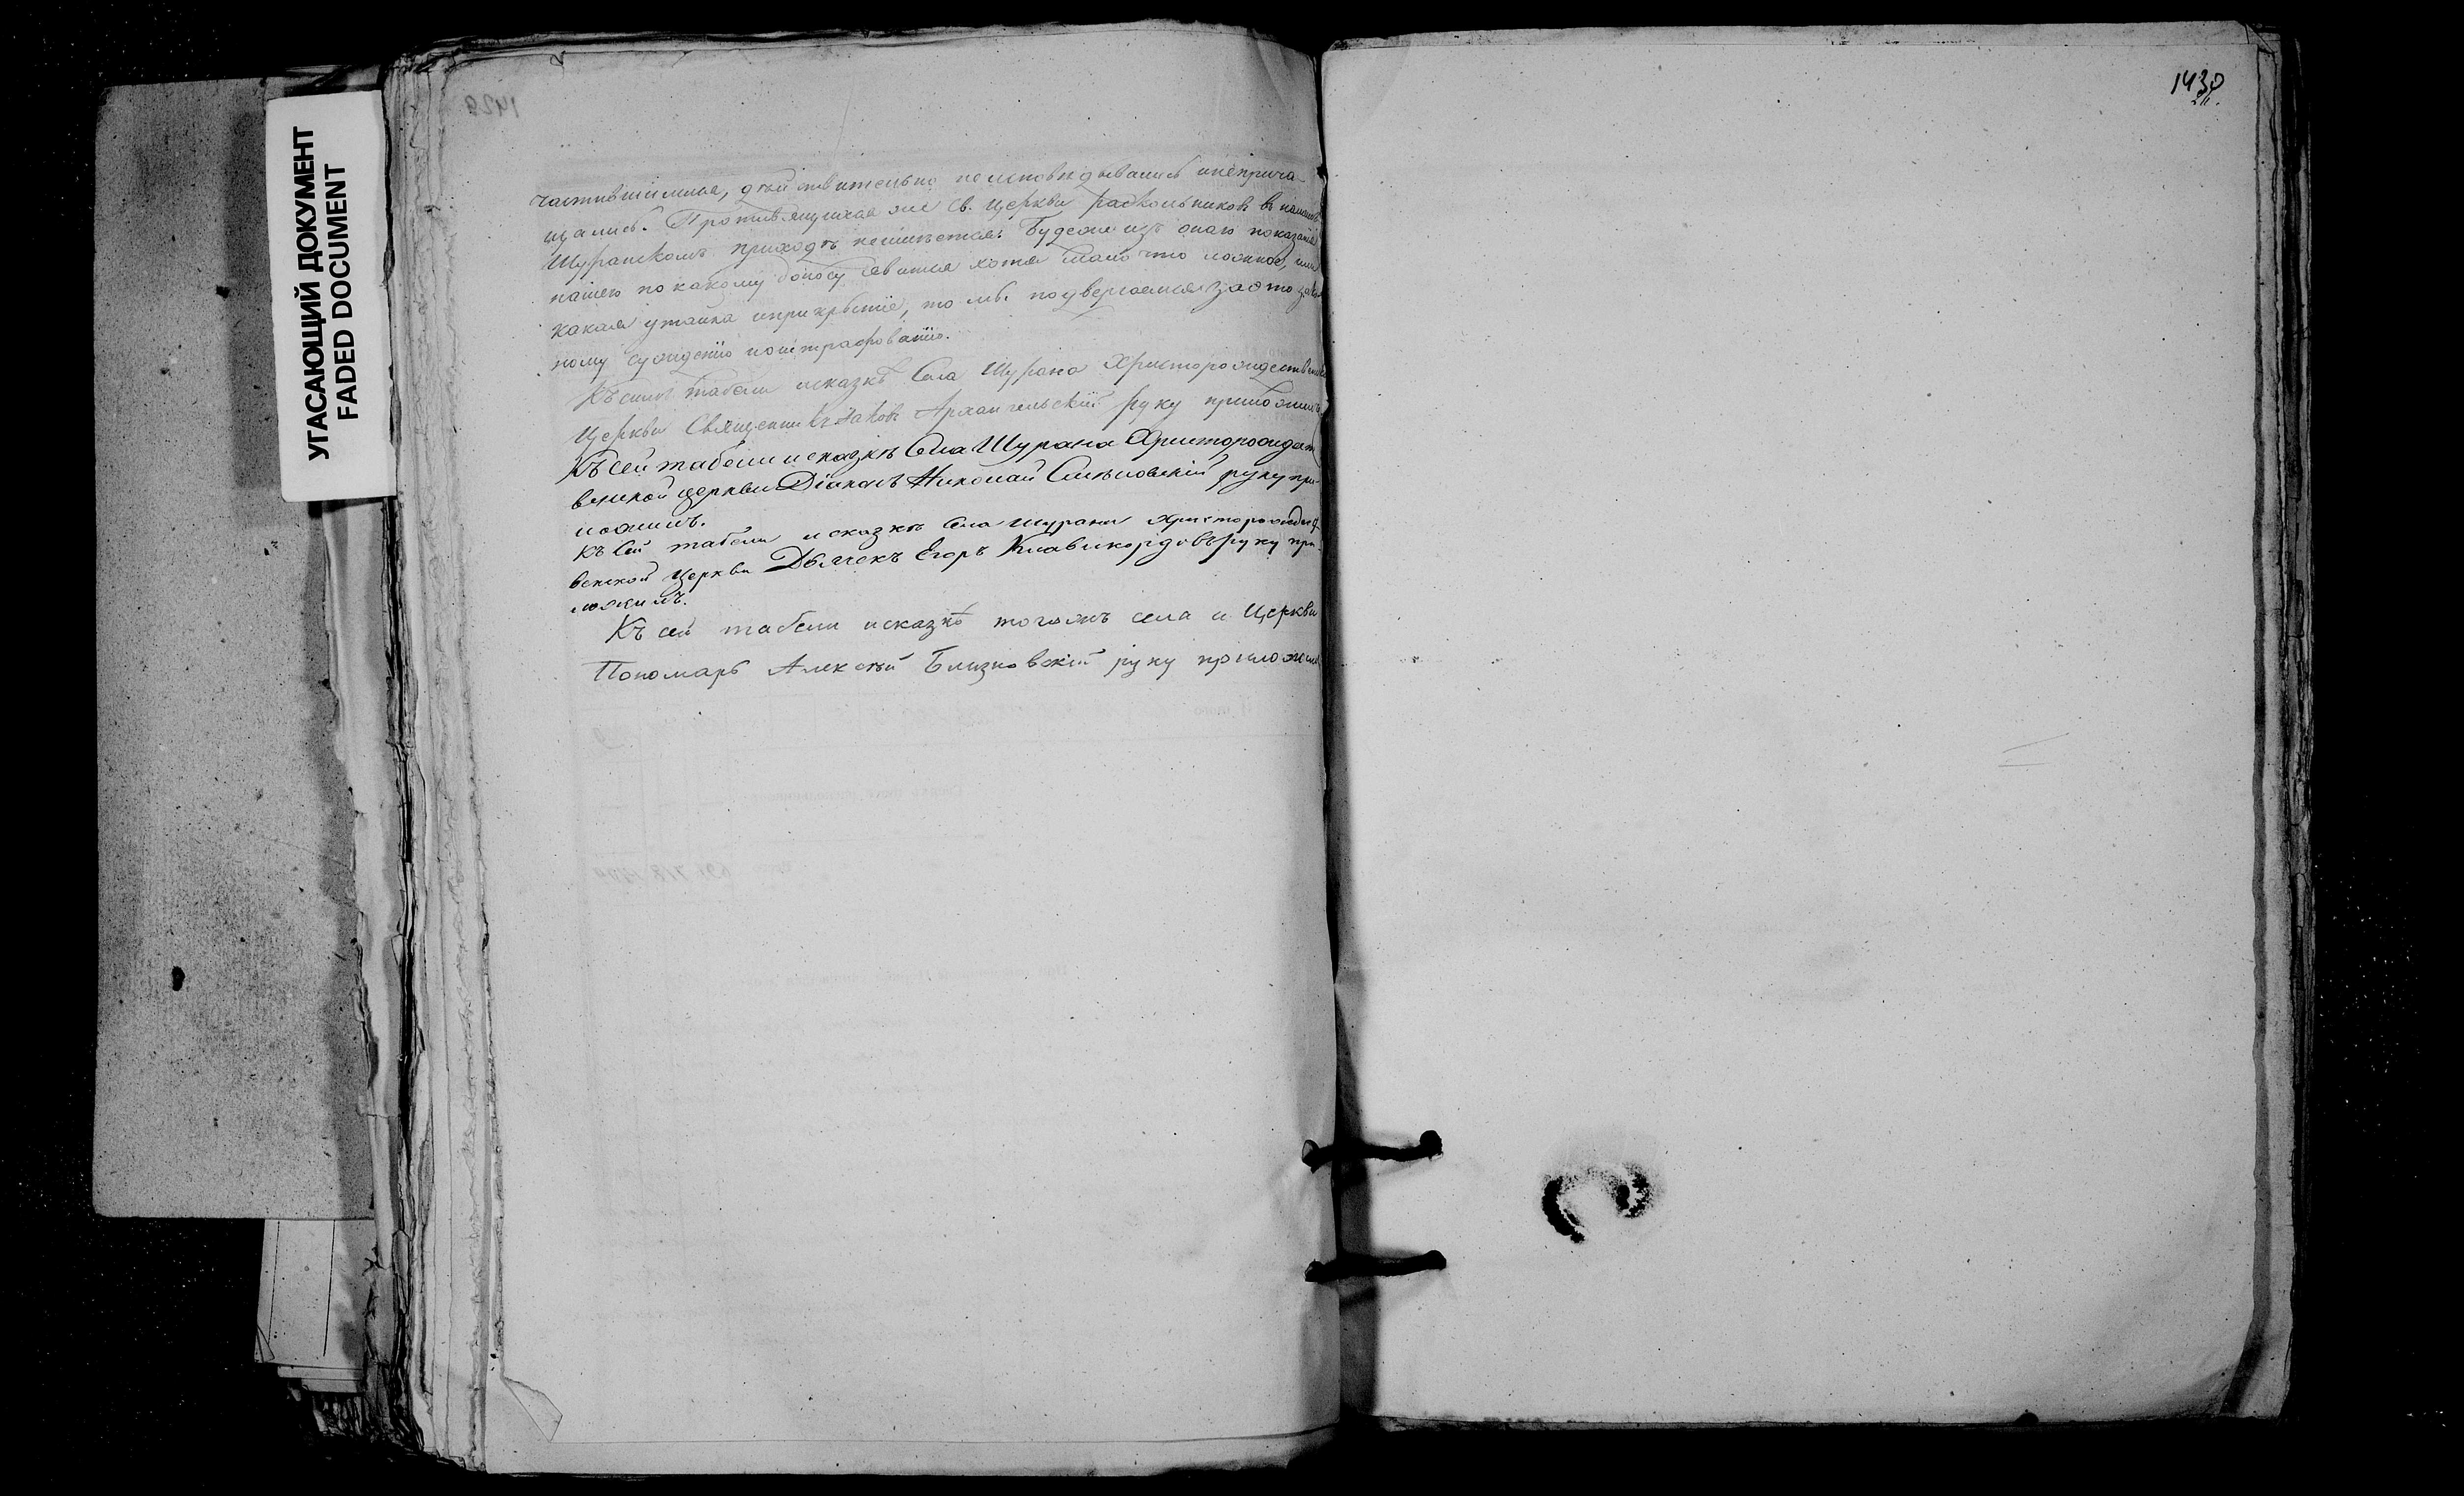 УГАСАЮЩИЙ ДОКУМЕНТ
FADED DOCUMENT
1430
частившимися, дѣйствительно неисповѣдывались инеприча-
щались. Противящихся же Св. Церкви раскольниковъ въ
Шуранскомъ приходѣ неимѣется. Будеже изъ онаго показанія
нашего по какому доносу явится хотя мало что ложное, или
какая утайка иприкрытіе, то мы подвергаемся зато
ному сужденію иоштрафованію.
Къ сей табели исказкѣ Села Шурана Христорождественской
Церкви Священникъ Іаковъ Архангельскій руку приложилъ.
Къ сей табели и сказкѣ Села Шурана Христорождест
венской церкви Діаконъ Николай руку при-
ложилъ.
Къ сей табели и сказкѣ Села Шурана Христорождест
венской Церкви Дьячекъ Егоръ Клавикордовъ руку при-
ложилъ.
Къ сей табели исказкѣ тогожъ села и Церкви
Пономарь Алексѣй Близновскій руку приложилъ